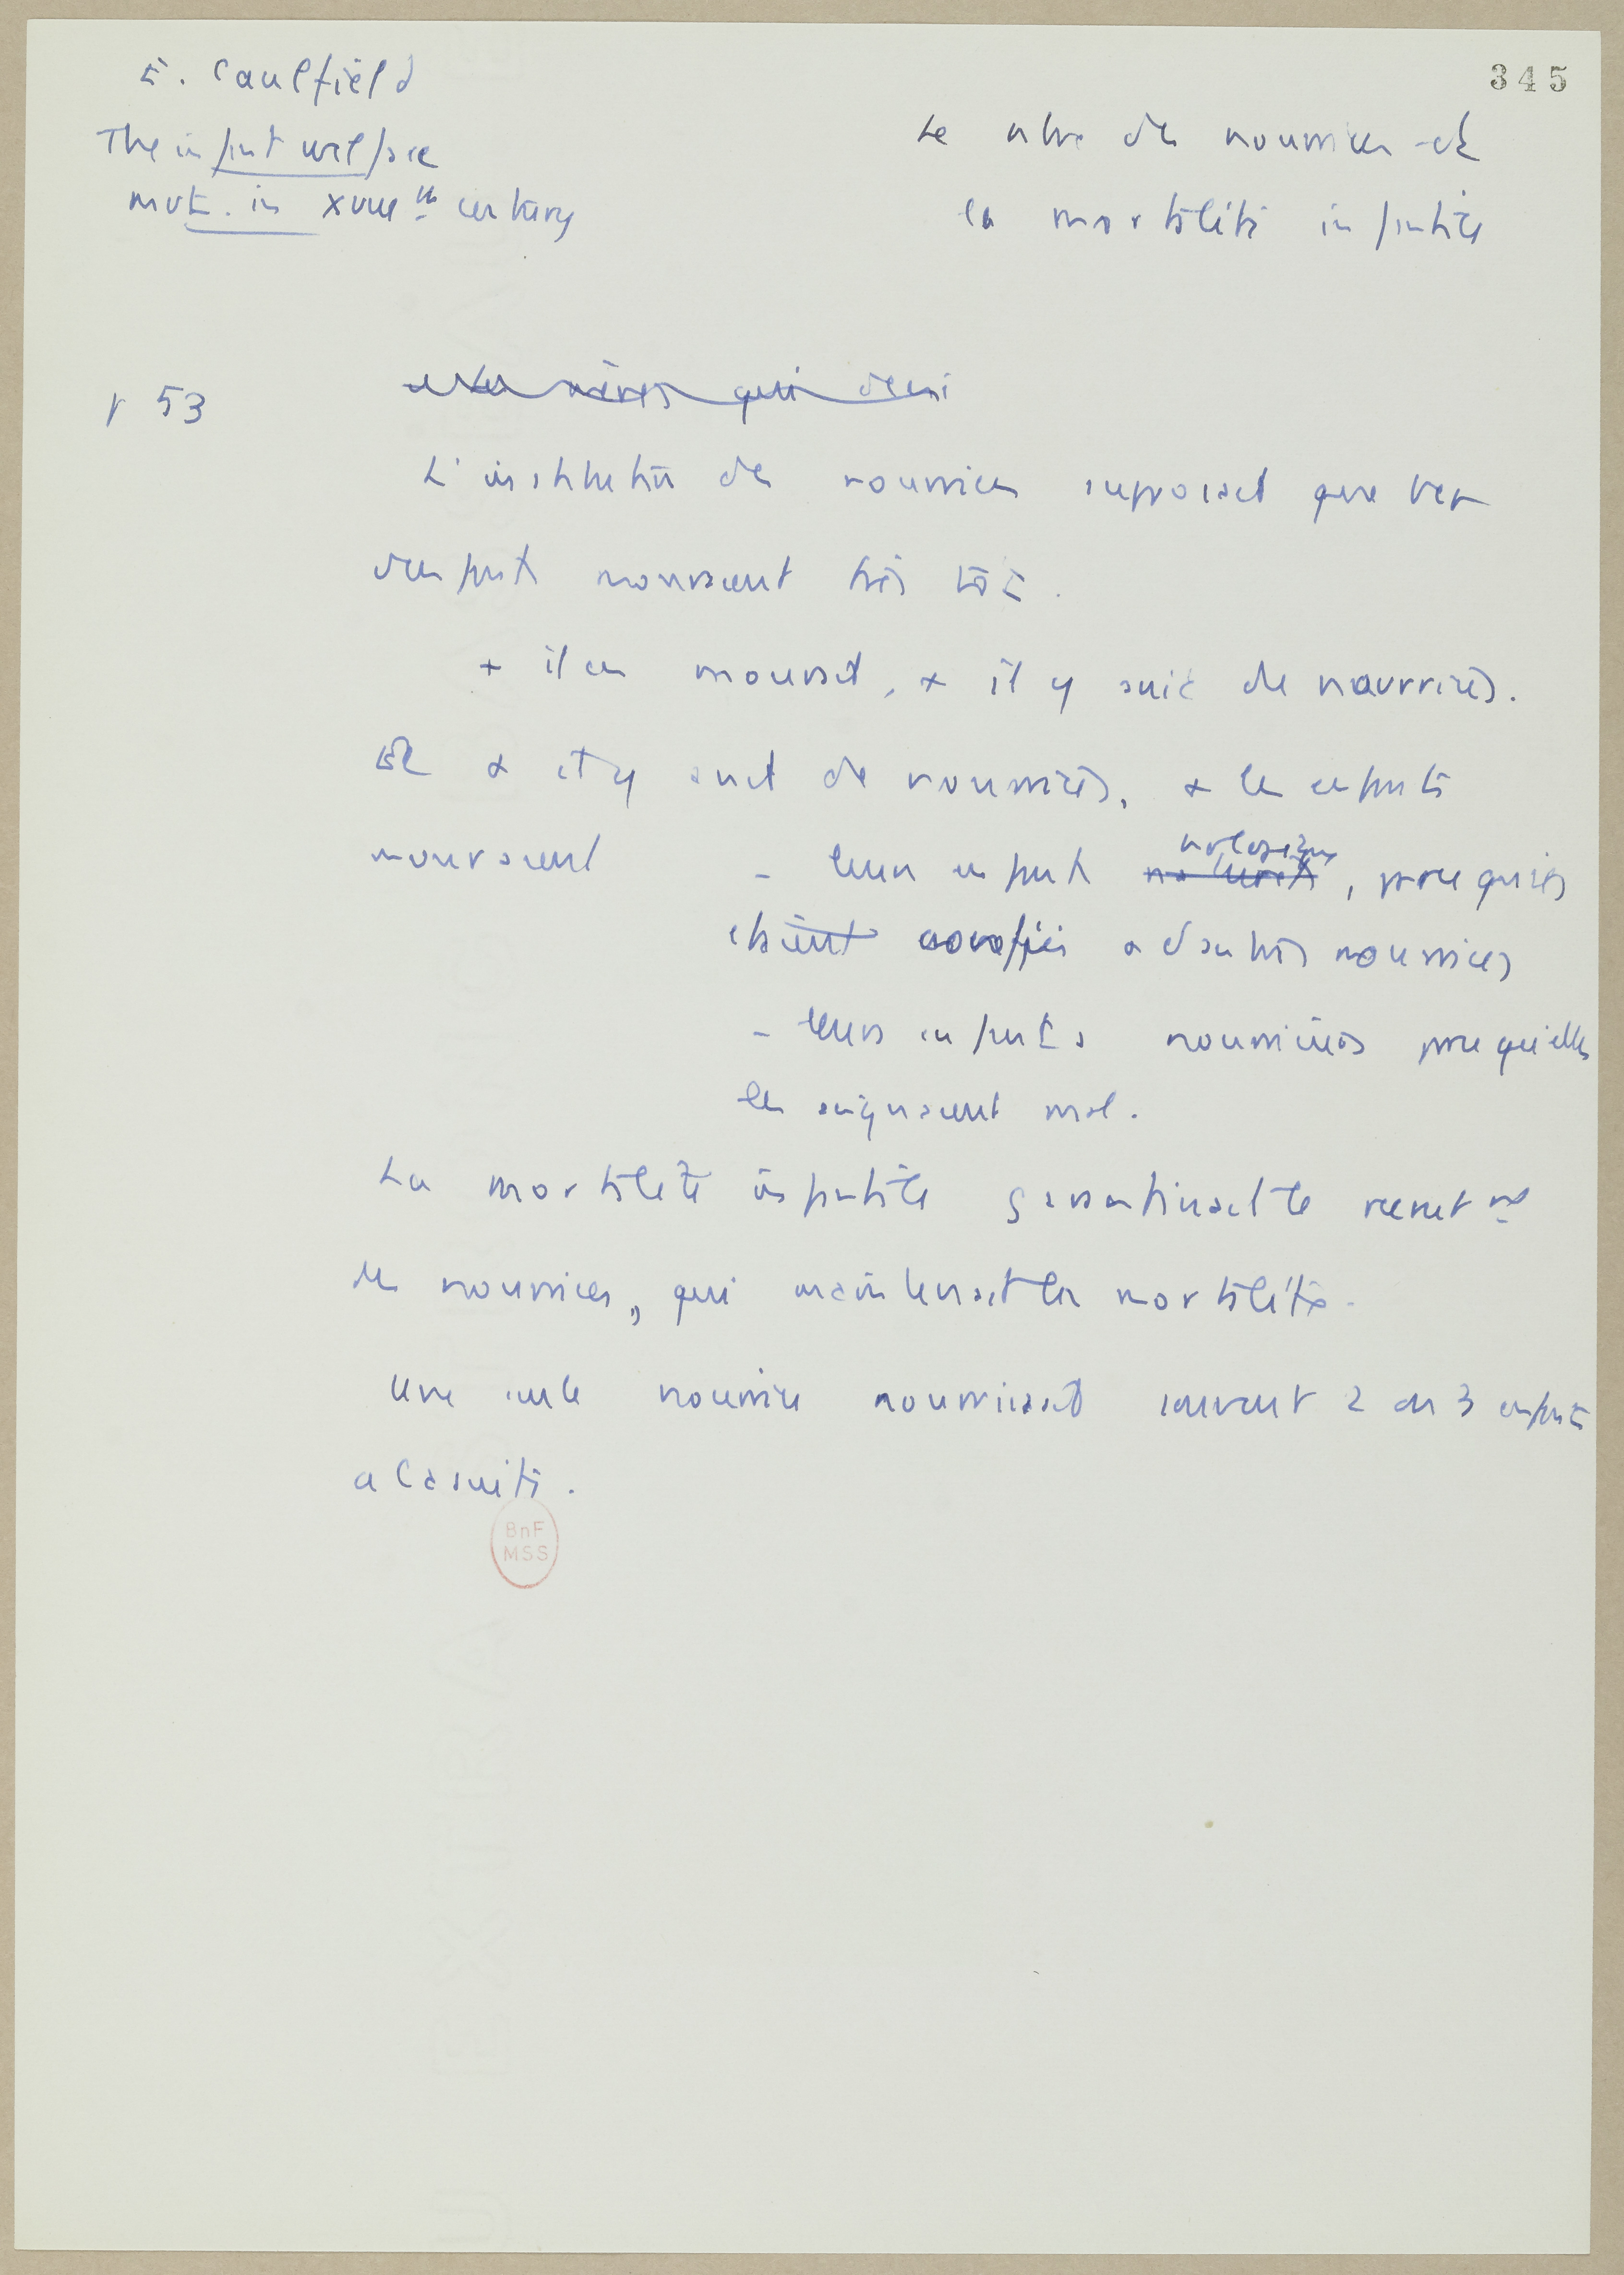 345
E. Caulfield
The infant welfare
mvt. in XVIIIth century
Le nbre des nourrices et
la mortalité infantile
p 53
et les mères qui
L'institution des nourrices supposait que
des enfants mouraient très tôt.
+ il en mourait, + il y avait de nourrices.
Et + il y avait de nourrices, + les enfants
mouraient
- leurs enfants biologiques, parce qu'ils
étaient confiés a d'autres nourrices
- leurs enfants nourriciers parce qu'elles
les soignaient mal.
La mortalité infantile garantissait le recrutnt
des nourrices, qui maintenait la mortalité.
Une seule nourrice nourrissait souvent 2 ou 3 enfants
a la suite.
BnF
MSS